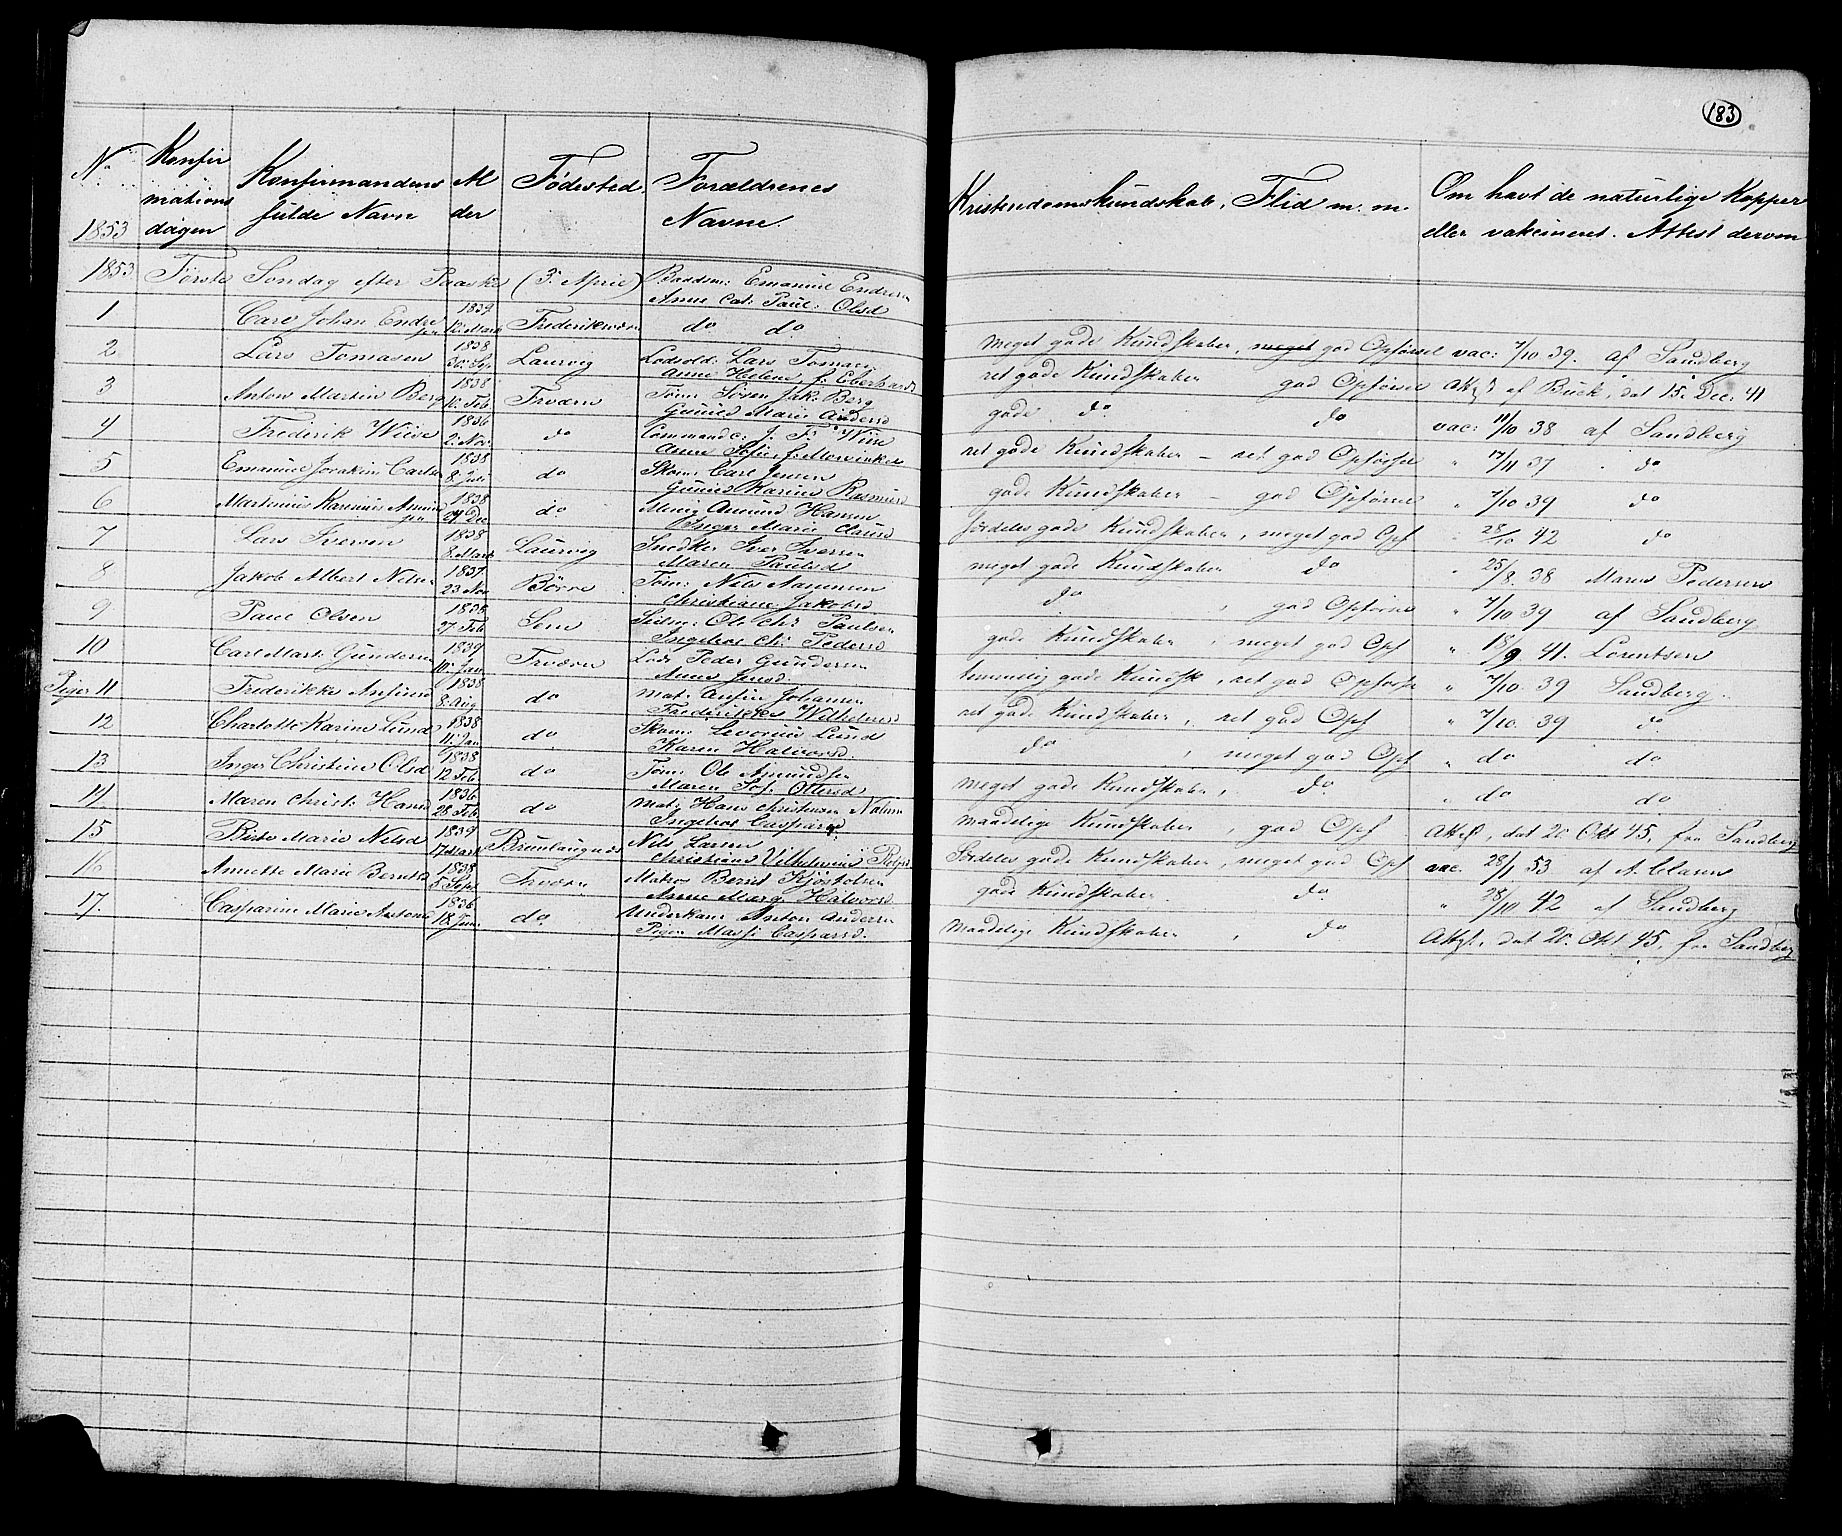 183
No Konfir Konfirmandens Al Fødested Forældrenes Kristendomskundskab, Flid m. m. Om havt de naturlige Kopper
mations fulde Navn der Navne. eller vakcineret. Attest derom
1853 dagen
1853 Første Søndag efter Paaske (3. April) Baadsm: Emanuel Endresen
1839 Anne Cat: Paul: Olsd
1 Carl Johan Endre sen 12. Marts Frederiksværn do do meget gode Kundskaber, meget god Opførsel vac: 7/10 39. af Sandberg
1838
2 Lars Tomasen 30. Sep. Laurvig Lodsold: Lars Tomasen
Anne Helene f. Eberhardt ret gode Kundskaber god Opførsel Att. af Buck, dat 15. Dec. 41
1838
3 Anton Martin Berg 12. Feb Frværn Tøm: Søren Jak: Berg
Gunild Marie Andersd gode do do vac: 11/10 38 af Sandberg
1836
4 Frederik Wiise 2. Nov. do Commandc: J. F. Wiise
Anne Sofie f. ret gode Kundskaber - ret god Opførsel " 17/11 37 do
1838
5 Emanuel Jorakim Carlsen 8. Juli do Skom: Carl Jensen
Gunild Karine Rasmusd gode Kundskaber - god Opførsel " 7/10 39 do
1838
6 Martinius Karinius Amund sen 27 Dec do Menig Amund Hansen
Inger Marie Clausd særdeles gode Kundskaber, meget god Opf " 28/10 42 do
1838
7 Lars Iversen 8. Marts Laurvig Snedker Iver Iversen
Maren Paulsd meget gode Kundskaber do " 25/8. 38 Maren Pedersen
1837
8 Jakob Albert Nilsen 23 Nov Tøm: Nils Aamunsen
Christiane Jakobsd do , god Opførsel " 7/10 39 af Sandberg
1838
9 Paul Olsen 27 Feb Sem Seilm: Ole Chr Paulsen
Ingebor Ch: Pedersd gode Kundskaber meget god Opf " 18/9 41. Lorentsen
1839
10 Carl Mart: Gundersen 10. Jan Frværn Lods Peder Gundersen
Anne Jensd temmelig gode Kundsk, ret god Opførsel " 7/10. 39 Sandberg.
1838
Piger 11 Frederikke Ansfinsd 8. Aug do Mat: Ansfin Johansen
Frederikke Wilhelmsd ret gode Kundskaber, ret god Opf " 7/10. 39 do
1838
12 Charlotte Karine Lund 11. Jan do Skom: Levorius Lund
Karen Halvorsd do , meget god Opf " do do
1838
13 Inger Christine Olsd 12 Feb. do Tøm: Ole Amundsen
Maren Sof: Ottersd meget gode Kundskaber, do " do do
1836
14 Maren Christ: Hansd 28 Feb. do Mat: Hans Christensen
Ingebor Caspersd maadelige Kundskaber, god Opf Att, dat 20 Okt 45, fra Sandberg
1839
15 Birte Marie Nilsd 17 Marts Brunlaugnæs Nils Larsen
Christiane Vilhelmine Særdeles gode Kundskaber, meget god Opf vac. 28/1 53 af A. Clasen
1838
16 Annette Marie Berntsd 5 Sept Frværn Matros Bernt Kjøstelsen
Anne Marg: Halvorsd gode Kundskaber. do " 28/10 42 af Sandberg
1836
17. Casparine Marie Antons 18. Juni do Underkan: Anton Andersen
Pigen Massi Caspersd. maadelige Kundskaber, do Att., dat 20. Okt 45, fra Sandberg